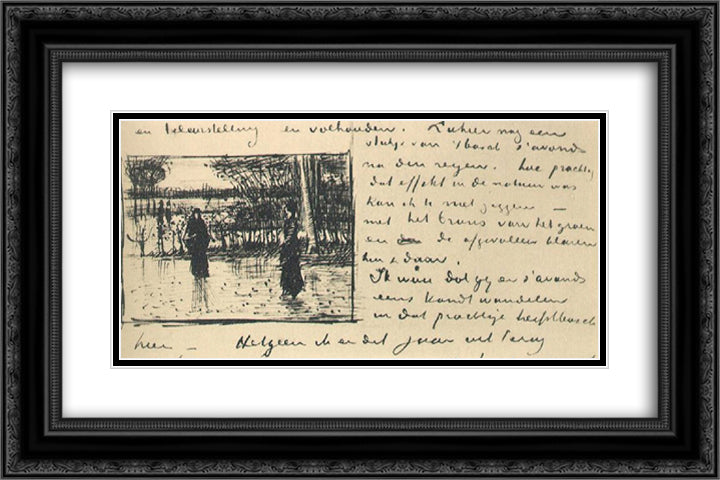 en teleurstelling en volhouden. Ziehier nog een
studje van 't bosch s'avonds
na den regen. hoe prachtig
dat effekt in de natuur was
kan ik U niet zeggen –
met het brons van het groen
en de afgevallen bladeren
hier & daar.
Ik wou dat gy er s'avonds
eens kondt wandelen
in dat prachtige herfstbosch
hier – Hetgeen ik er dit jaar uit